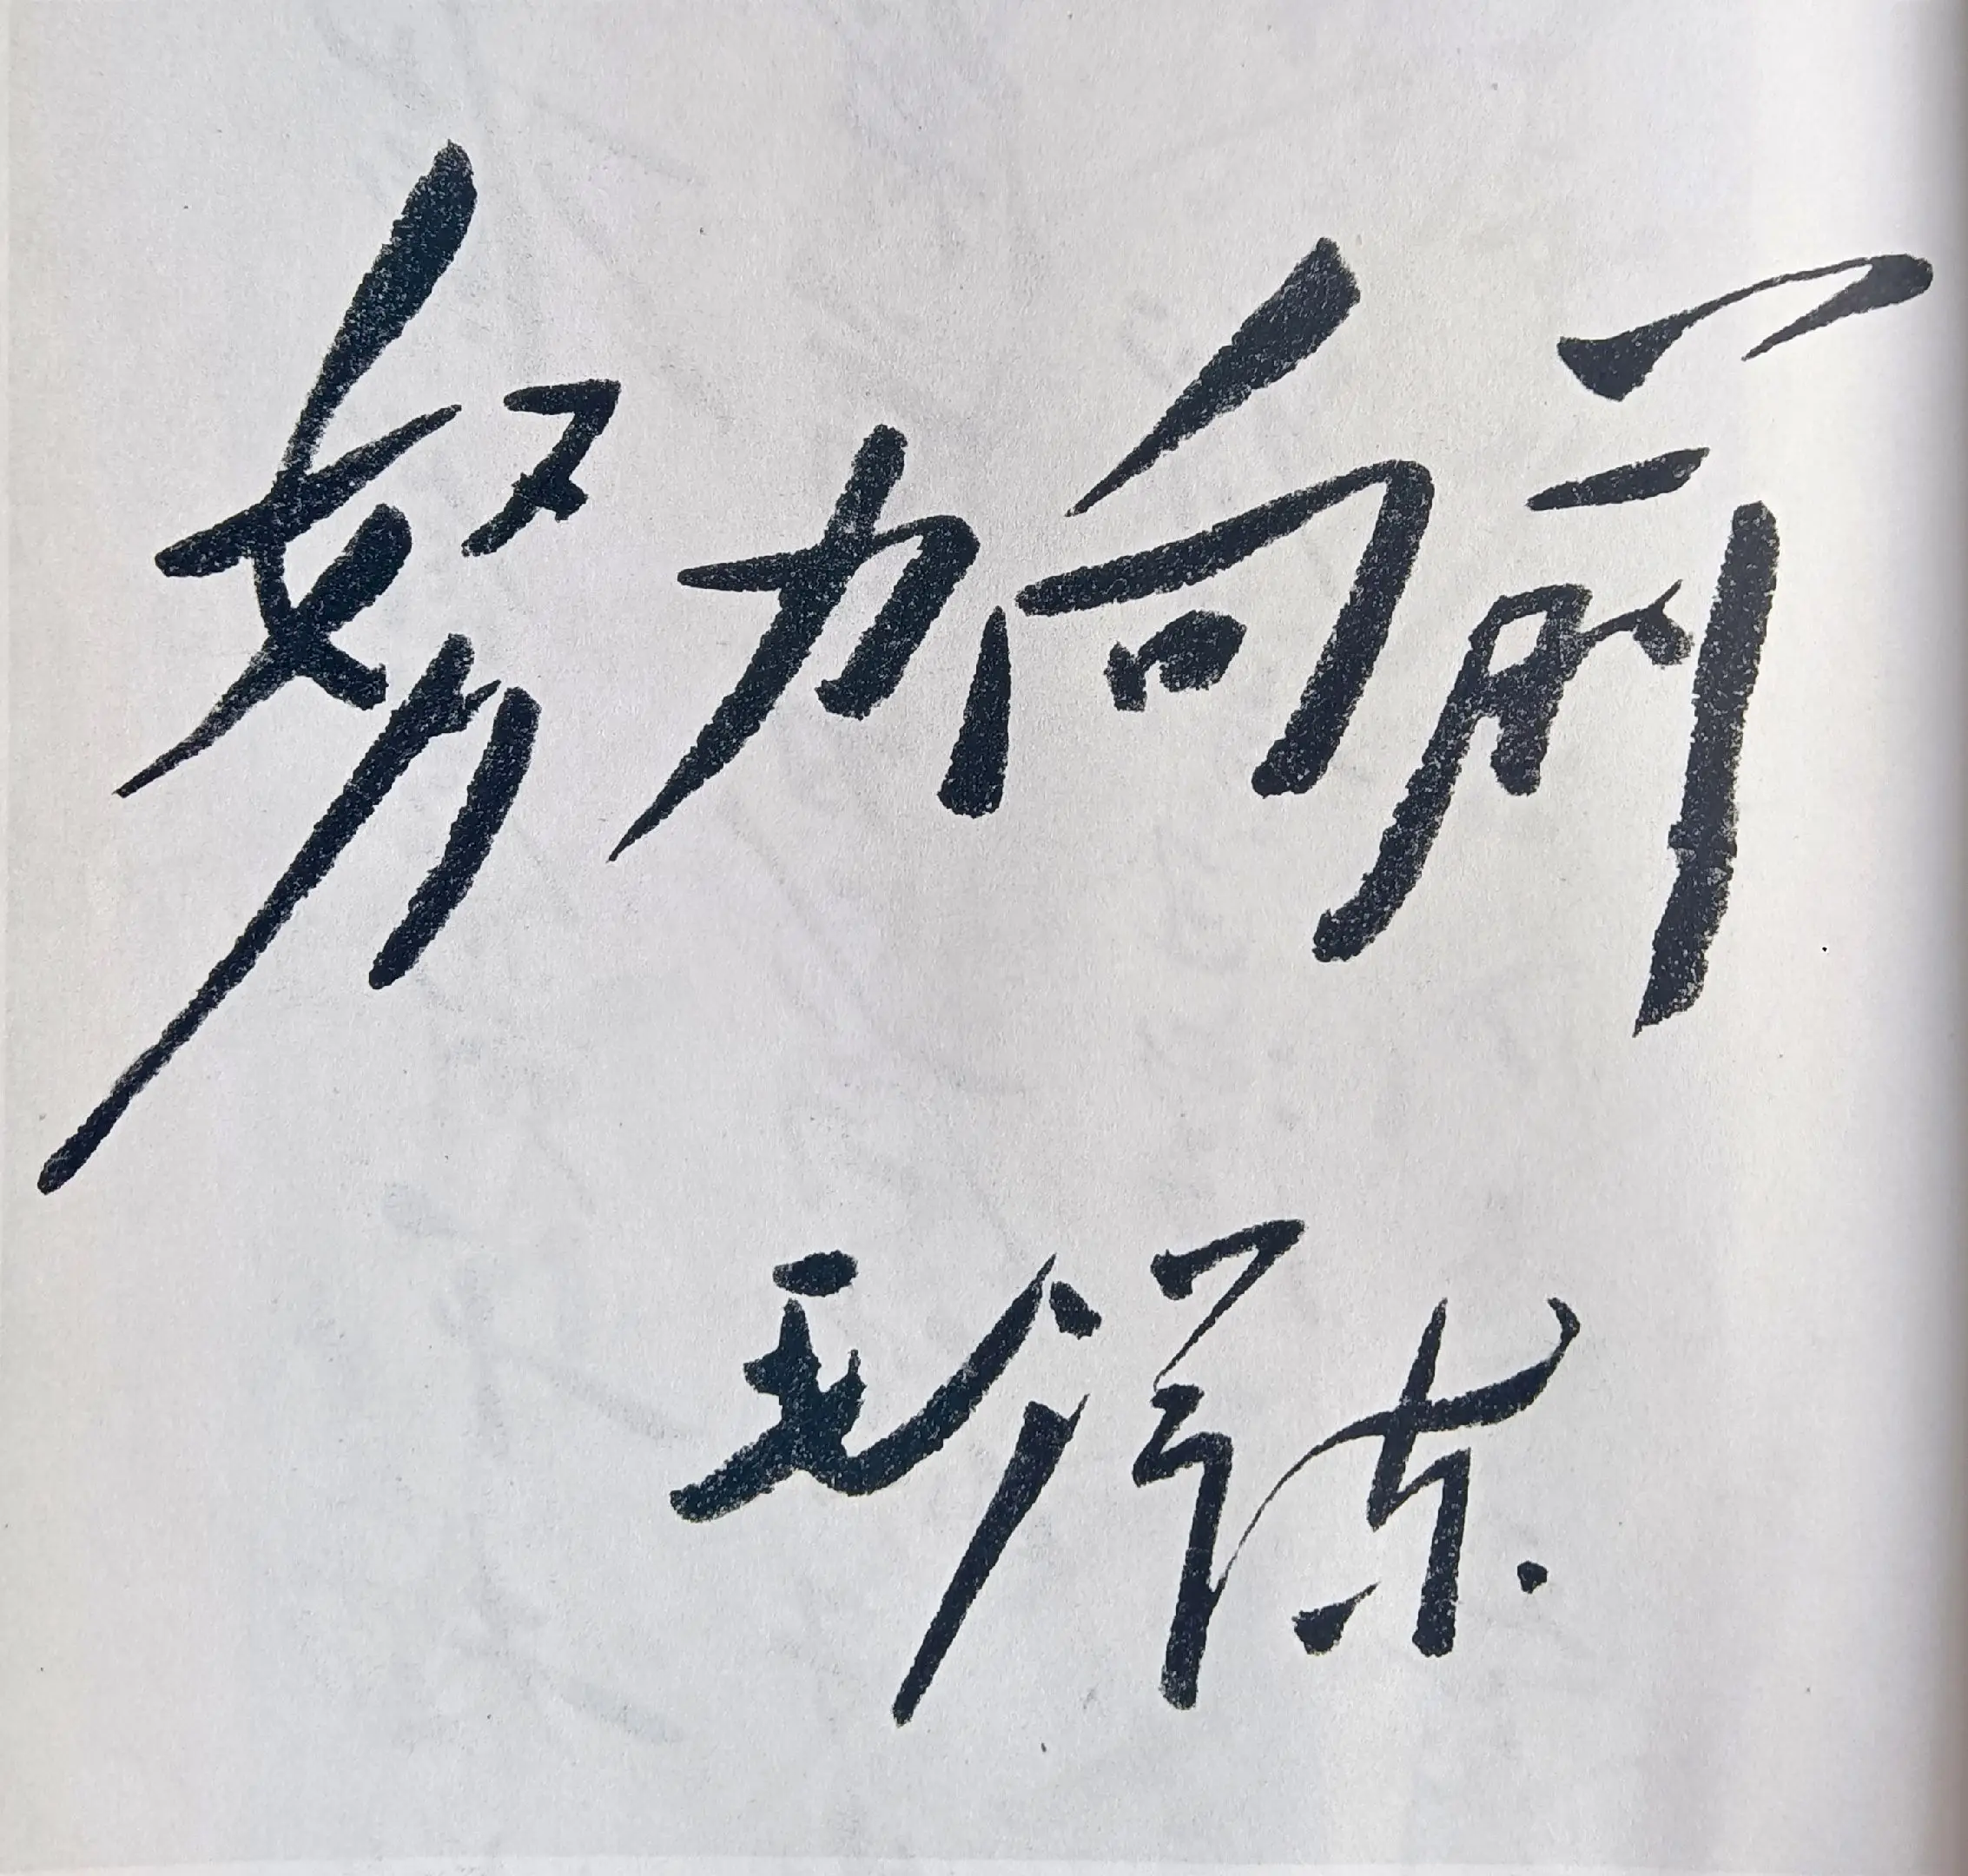 努力向前
毛泽东